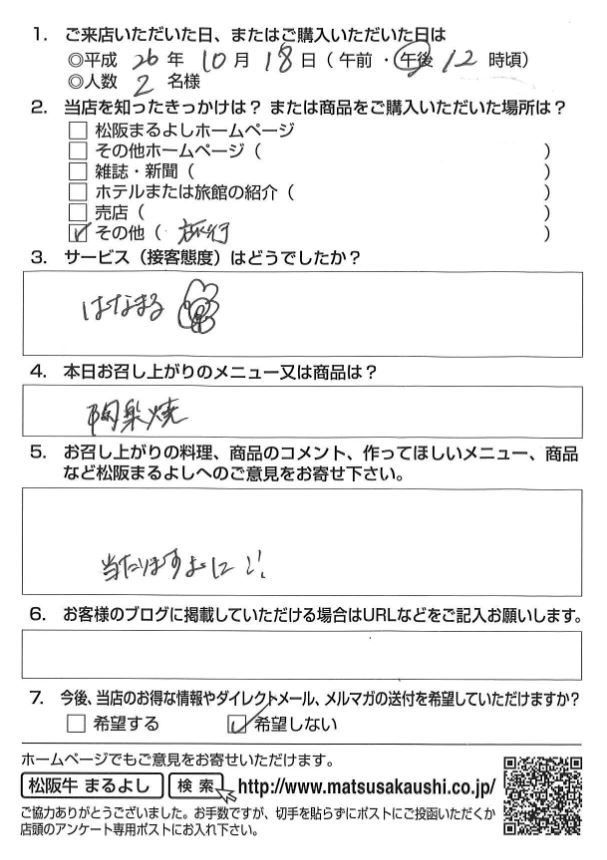 1. ご来店いただいた日、またはご購入いただいた日は
◎平成 26 年 10 月 18 日（午前・午後 12 時頃）
◎人数 2 名様
2. 当店を知ったきっかけは？ または商品をご購入いただいた場所は？
□ 松阪まるよしホームページ
□ その他ホームページ（ ）
□ 雑誌・新聞（ ）
□ ホテルまたは旅館の紹介（ ）
□ 売店（ ）
☑ その他（ 旅行 ）
3. サービス（接客態度）はどうでしたか？
はなまる
4. 本日お召し上がりのメニュー又は商品は？
陶楽焼
5. お召し上がりの料理、商品のコメント、作ってほしいメニュー、商品
など松阪まるよしへのご意見をお寄せ下さい。
当たりますように!!
6. お客様のブログに掲載していただける場合はURLなどをご記入お願いします。
7. 今後、当店のお得な情報やダイレクトメール、メルマガの送付を希望していただけますか？
□ 希望する ☑ 希望しない
ホームページでもご意見をお寄せいただけます。
松阪牛 まるよし 検索 http://www.matsusakaushi.co.jp/
ご協力ありがとうございました。お手数ですが、切手を貼らずにポストにご投函いただくか
店頭のアンケート専用ポストにお入れ下さい。